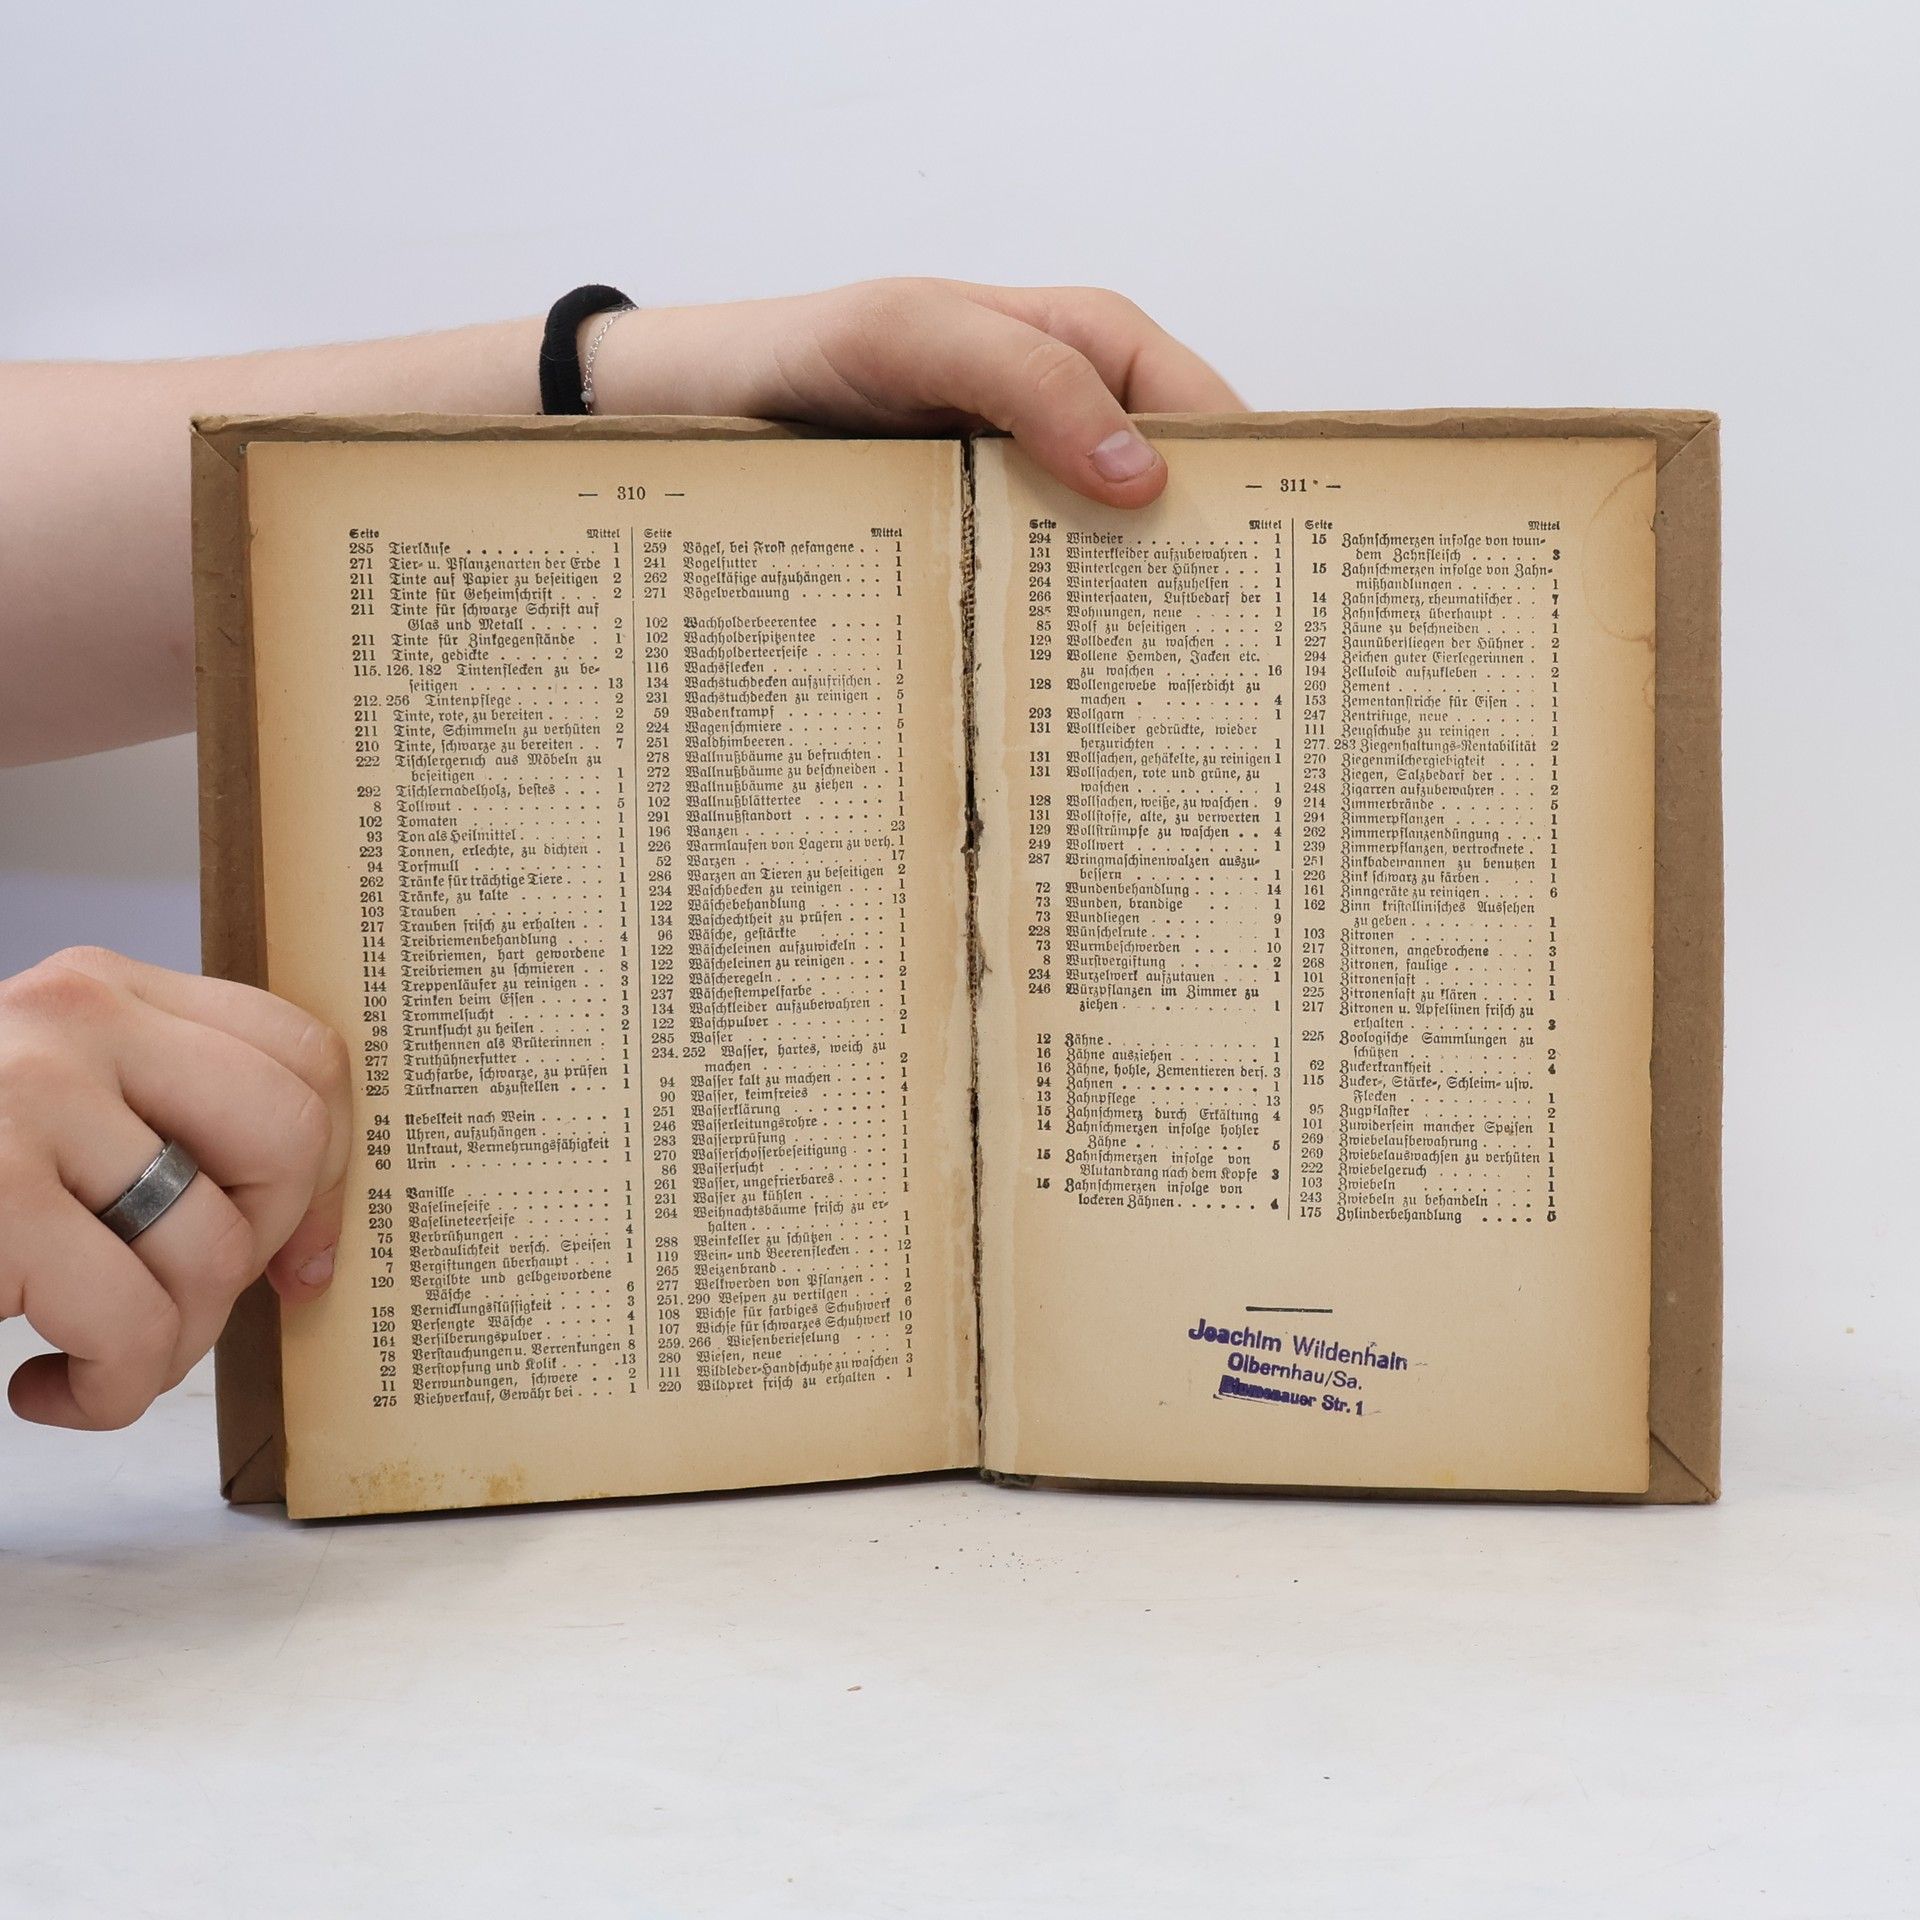 — 310 —
Seite Mittel
285 Tierläuse . . . . . . . . . 1
271 Tier- u. Pflanzenarten der Erde 1
211 Tinte auf Papier zu beseitigen 2
211 Tinte für Geheimschrift . . . 2
211 Tinte für schwarze Schrift auf
Glas und Metall . . . . . 2
211 Tinte für Zinkgegenstände . 1
211 Tinte, gedickte . . . . . . . 2
115. 126. 182 Tintenflecken zu be-
seitigen . . . . . . . . . . 13
212. 256 Tintenpflege . . . . . . 2
211 Tinte, rote, zu bereiten . . . . 2
211 Tinte, Schimmeln zu verhüten 2
210 Tinte, schwarze zu bereiten . . 7
222 Tischlergeruch aus Möbeln zu
beseitigen . . . . . . . . 1
292 Tischlernadelholz, bestes . . . 1
8 Tollwut . . . . . . . . . . 5
102 Tomaten . . . . . . . . . 1
93 Ton als Heilmittel . . . . . . 1
223 Tonnen, erlechte, zu dichten . 1
94 Torfmull . . . . . . . . . 1
262 Tränke für trächtige Tiere . . . 1
261 Tränke, zu kalte . . . . . . 1
103 Trauben . . . . . . . . . 1
217 Trauben frisch zu erhalten . . 1
114 Treibriemenbehandlung . . . 4
114 Treibriemen, hart gewordene 1
114 Treibriemen zu schmieren . . 8
144 Treppenläufer zu reinigen . . 3
100 Trinken beim Essen . . . . . 1
281 Trommelsucht . . . . . . . 3
98 Trunksucht zu heilen . . . . . 2
280 Truthennen als Brüterinnen . 1
277 Truthühnerfutter . . . . . . 1
132 Tuchfarbe, schwarze, zu prüfen 1
225 Türknarren abzustellen . . . 1
94 Uebelkeit nach Wein . . . . . 1
240 Uhren, aufzuhängen . . . . . 1
249 Unkraut, Vermehrungsfähigkeit 1
60 Urin . . . . . . . . . . 1
244 Vanille . . . . . . . . . . 1
230 Vaselineseife . . . . . . . . 1
230 Vaselineteerseife . . . . . . 1
75 Verbrühungen . . . . . . . 4
104 Verdaulichkeit versch. Speisen 1
7 Vergiftungen überhaupt . . . 1
120 Vergilbte und gelbgewordene
Wäsche . . . . . . . . . 6
158 Vernicklungsflüssigkeit . . . . 3
120 Versengte Wäsche . . . . . 4
164 Versilberungspulver . . . . . 1
78 Verstauchungen u. Verrenkungen 8
22 Verstopfung und Kolik . . . . 13
11 Verwundungen, schwere . . 2
275 Viehverkauf, Gewähr bei . . . 1
Seite Mittel
259 Vögel, bei Frost gefangene . . 1
241 Vogelfutter . . . . . . . . 1
262 Vogelkäfige aufzuhängen . . . 1
271 Vögelverdauung . . . . . . 1
102 Wachholderbeerentee . . . . 1
102 Wachholderspitzentee . . . . 1
230 Wachholderteerseife . . . . . 1
116 Wachsflecken . . . . . . . 1
134 Wachstuchdecken aufzufrischen . 2
231 Wachstuchdecken zu reinigen . 5
59 Wadenkrampf . . . . . . . 1
224 Wagenschmiere . . . . . . . 5
251 Waldhimbeeren . . . . . . . 1
278 Wallnußbäume zu befruchten . 1
272 Wallnußbäume zu beschneiden . 1
272 Wallnußbäume zu ziehen . . . 1
102 Wallnußblättertee . . . . . 1
291 Wallnußstandort . . . . . . 1
196 Wanzen . . . . . . . . . . 23
226 Warmlaufen von Lagern zu verh. 1
52 Warzen . . . . . . . . . . 17
286 Warzen an Tieren zu beseitigen 2
234 Waschbecken zu reinigen . . . 1
122 Wäschebehandlung . . . . . 13
134 Waschechtheit zu prüfen . . . 1
96 Wäsche, gestärkte . . . . . 1
122 Wäscheleinen aufzuwickeln . . 1
122 Wäscheleinen zu reinigen . . . 1
122 Wäscheregeln . . . . . . . 2
237 Wäschestempelfarbe . . . . . 1
134 Waschkleider aufzubewahren . 1
122 Waschpulver . . . . . . . . 2
285 Wasser . . . . . . . . . . 1
234. 252 Wasser, hartes, weich zu
machen . . . . . . . . . 2
94 Wasser kalt zu machen . . . . 1
90 Wasser, keimfreies . . . . . 4
251 Wasserklärung . . . . . . . 1
246 Wasserleitungsrohre . . . . . 1
283 Wasserprüfung . . . . . . . 1
270 Wasserschosserbeseitigung . . . 1
86 Wassersucht . . . . . . . . 1
261 Wasser, ungefrierbares . . . . 1
231 Wasser zu kühlen . . . . . . 1
264 Weihnachtsbäume frisch zu er-
halten . . . . . . . . . . 1
288 Weinkeller zu schützen . . . . 1
119 Wein- und Beerenflecken . . . 12
265 Weizenbrand . . . . . . . . 1
277 Welkwerden von Pflanzen . . 1
251. 290 Wespen zu vertilgen . . . 2
108 Wichse für farbiges Schuhwerk 6
107 Wichse für schwarzes Schuhwerk 10
259. 266 Wiesenberieselung . . . 2
280 Wiesen, neue . . . . . . . 1
111 Wildleder-Handschuhe zu waschen 3
220 Wildpret frisch zu erhalten . 1
— 311 —
Seite Mittel
294 Windeier . . . . . . . . . . 1
131 Winterkleider aufzubewahren . 1
293 Winterlegen der Hühner . . . 1
264 Wintersaaten aufzuhelfen . . . 1
266 Wintersaaten, Luftbedarf der 1
285 Wohnungen, neue . . . . . 1
85 Wolf zu beseitigen . . . . . 2
129 Wolldecken zu waschen . . . . 1
129 Wollene Hemden, Jacken etc.
zu waschen . . . . . . . 16
128 Wollengewebe wasserdicht zu
machen . . . . . . . . 4
293 Wollgarn . . . . . . . . . 1
131 Wollkleider gedrückte, wieder
herzurichten . . . . . . . 1
131 Wollsachen, gehäkelte, zu reinigen 1
131 Wollsachen, rote und grüne, zu
waschen . . . . . . . . . 1
128 Wollsachen, weiße, zu waschen . 9
131 Wollstoffe, alte, zu verwerten 1
129 Wollstrümpfe zu waschen . . 4
249 Wollwert . . . . . . . . . 1
287 Wringmaschinenwalzen auszu-
bessern . . . . . . . . . 1
72 Wundenbehandlung . . . . . 14
73 Wunden, brandige . . . . 1
73 Wundliegen . . . . . . . . 9
228 Wünschelrute . . . . . . . 1
73 Wurmbeschwerden . . . . . 10
8 Wurstvergiftung . . . . . . 2
234 Wurzelwerk aufzutauen . . . 1
246 Würzpflanzen im Zimmer zu
ziehen . . . . . . . . . . 1
12 Zähne . . . . . . . . . . . 1
16 Zähne ausziehen . . . . . . 1
16 Zähne, hohle, Zementieren ders. 3
94 Zahnen . . . . . . . . . . 1
13 Zahnpflege . . . . . . . . 13
15 Zahnschmerz durch Erkältung 4
14 Zahnschmerzen infolge hohler
Zähne . . . . . . . . . . 5
15 Zahnschmerzen infolge von
Blutandrang nach dem Kopfe 3
15 Zahnschmerzen infolge von
lockeren Zähnen . . . . . . 4
Seite Mittel
15 Zahnschmerzen infolge von wun-
dem Zahnfleisch . . . . . 3
15 Zahnschmerzen infolge von Zahn-
mißhandlungen . . . . . . 1
14 Zahnschmerz, rheumatischer . . 7
16 Zahnschmerz überhaupt . . . 4
235 Zäune zu beschneiden . . . . 1
227 Zaunüberfliegen der Hühner . 2
294 Zeichen guter Eierlegerinnen . 1
194 Zelluloid aufzukleben . . . . 2
269 Zement . . . . . . . . . . 1
153 Zementanstriche für Eisen . . 1
247 Zentrifuge, neue . . . . . . 1
111 Zeugschuhe zu reinigen . . . 1
277. 283 Ziegenhaltungs-Rentabilität 2
270 Ziegenmilchergiebigkeit . . . 1
273 Ziegen, Salzbedarf der . . . 1
248 Zigarren aufzubewahren . . . 2
214 Zimmerbrände . . . . . . . 5
294 Zimmerpflanzen . . . . . . 1
262 Zimmerpflanzendüngung . . . 1
239 Zimmerpflanzen, vertrocknete . 1
251 Zinkbadewannen zu benutzen 1
226 Zink schwarz zu färben . . . 1
161 Zinngeräte zu reinigen . . . . 6
162 Zinn kristallinisches Aussehen
zu geben . . . . . . . . . 1
103 Zitronen . . . . . . . . . 1
217 Zitronen, angebrochene . . . 3
268 Zitronen, faulige . . . . . . 1
101 Zitronensaft . . . . . . . . 1
225 Zitronensaft zu klären . . . . 1
217 Zitronen u. Apfelsinen frisch zu
erhalten . . . . . . . . . 3
225 Zoologische Sammlungen zu
schützen . . . . . . . . . 2
62 Zuckerkrankheit . . . . . . 4
115 Zucker-, Stärke-, Schleim- usw.
Flecken . . . . . . . . . 1
95 Zugpflaster . . . . . . . . 2
101 Zuwidersein mancher Speisen 1
269 Zwiebelaufbewahrung . . . . 1
269 Zwiebelauswachsen zu verhüten 1
222 Zwiebelgeruch . . . . . . 1
103 Zwiebeln . . . . . . . . 1
243 Zwiebeln zu behandeln . . . . 1
175 Zylinderbehandlung . . . . 5
Joachim Wildenhain
Olbernhau/Sa.
Blumenauer Str. 1